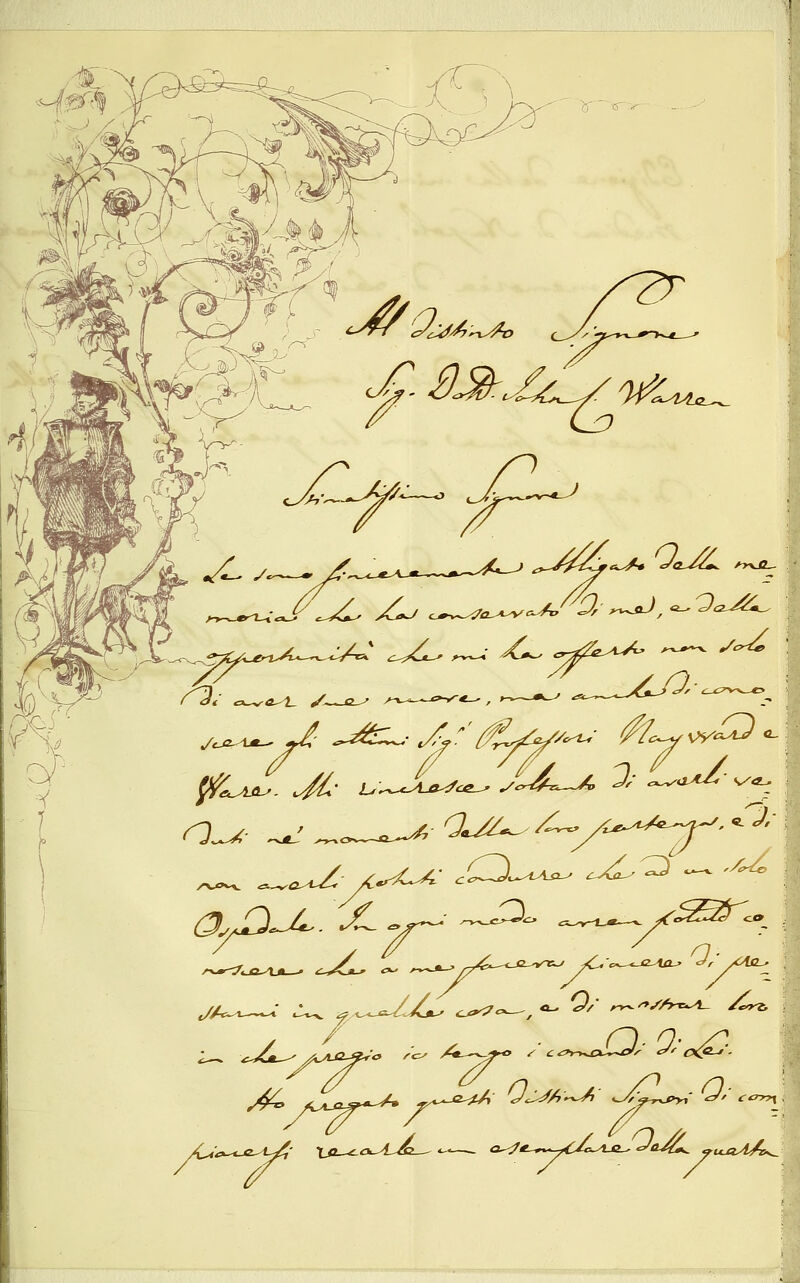 Al distinto Signore
Sig. Dott. John C. Warren
Stimatissimo Signore
Le sono sinceramente obbligato della me=
moria che ha conservato di me, e della
opportunità che mi ha offerto non solo
di aver sue nuove, ma anche di cono=
scere gli ottimi Sig.ri Professori Hayward e
Ware. Mi rincresce soltanto di averli ve=
duti ne' momenti della loro partenza, e di
non averli potuti condurre che ad un solo
Ospedale. In ogni modo avran potuto co=
noscere che a me faceva piacere di pre=
starmi in qualche cosa, e di mostrar loro
in che pregio io tengo i comandi di Lei.
Ho pregato questi distinti Signori di com=
piacersi recarle un esemplare della quarta